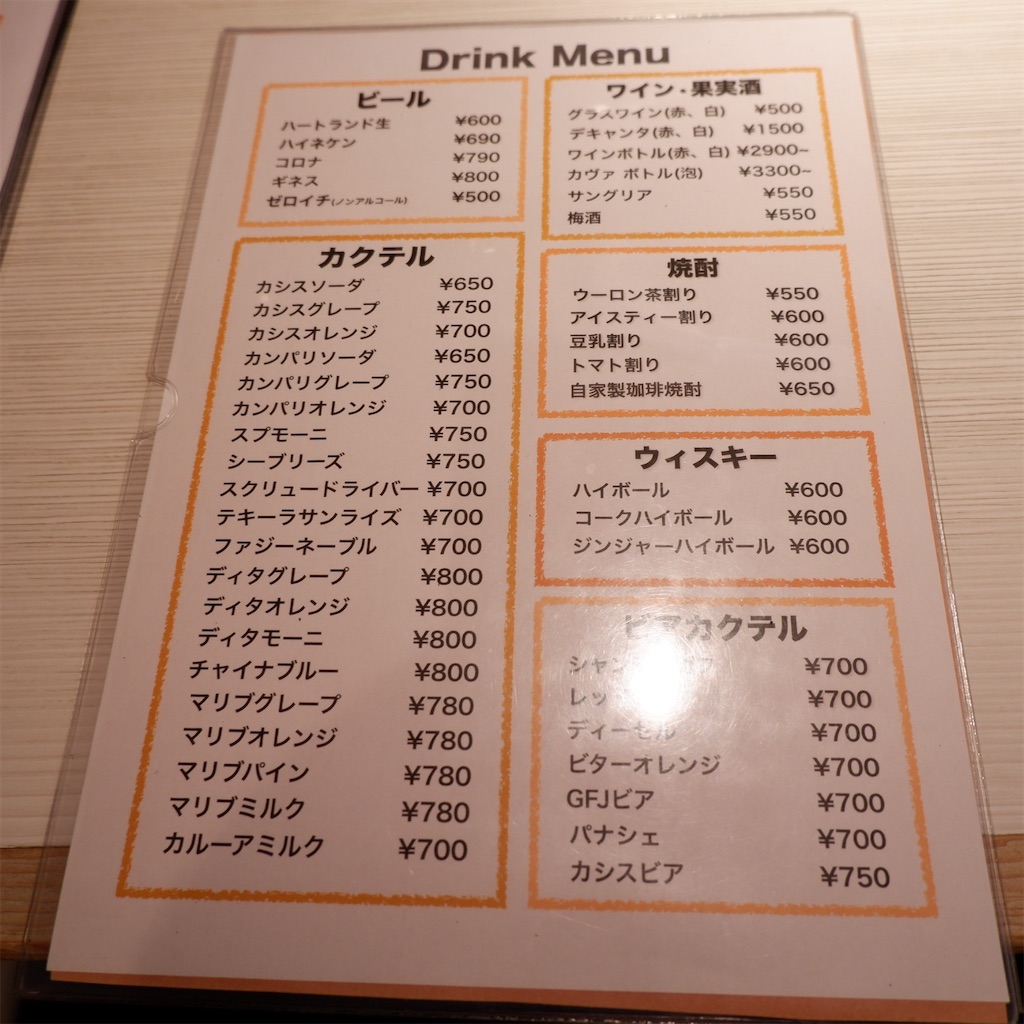 Drink Menu
ビール
ハートランド生 ¥600
ハイネケン ¥690
コロナ ¥790
ギネス ¥800
ゼロイチ(ノンアルコール) ¥500
カクテル
カシスソーダ ¥650
カシスグレープ ¥750
カシスオレンジ ¥700
カンパリソーダ ¥650
カンパリグレープ ¥750
カンパリオレンジ ¥700
スプモーニ ¥750
シーブリーズ ¥750
スクリュードライバー ¥700
テキーラサンライズ ¥700
ファジーネーブル ¥700
ディタグレープ ¥800
ディタオレンジ ¥800
ディタモーニ ¥800
チャイナブルー ¥800
マリブグレープ ¥780
マリブオレンジ ¥780
マリブパイン ¥780
マリブミルク ¥780
カルーアミルク ¥700
ワイン・果実酒
グラスワイン(赤、白) ¥500
デキャンタ(赤、白) ¥1500
ワインボトル(赤、白) ¥2900~
カヴァ ボトル(泡) ¥3300~
サングリア ¥550
梅酒 ¥550
焼酎
ウーロン茶割り ¥550
アイスティー割り ¥600
豆乳割り ¥600
トマト割り ¥600
自家製珈琲焼酎 ¥650
ウィスキー
ハイボール ¥600
コークハイボール ¥600
ジンジャーハイボール ¥600
ビアカクテル
¥700
¥700
ディーゼル ¥700
ビターオレンジ ¥700
GFJビア ¥700
パナシェ ¥700
カシスビア ¥750